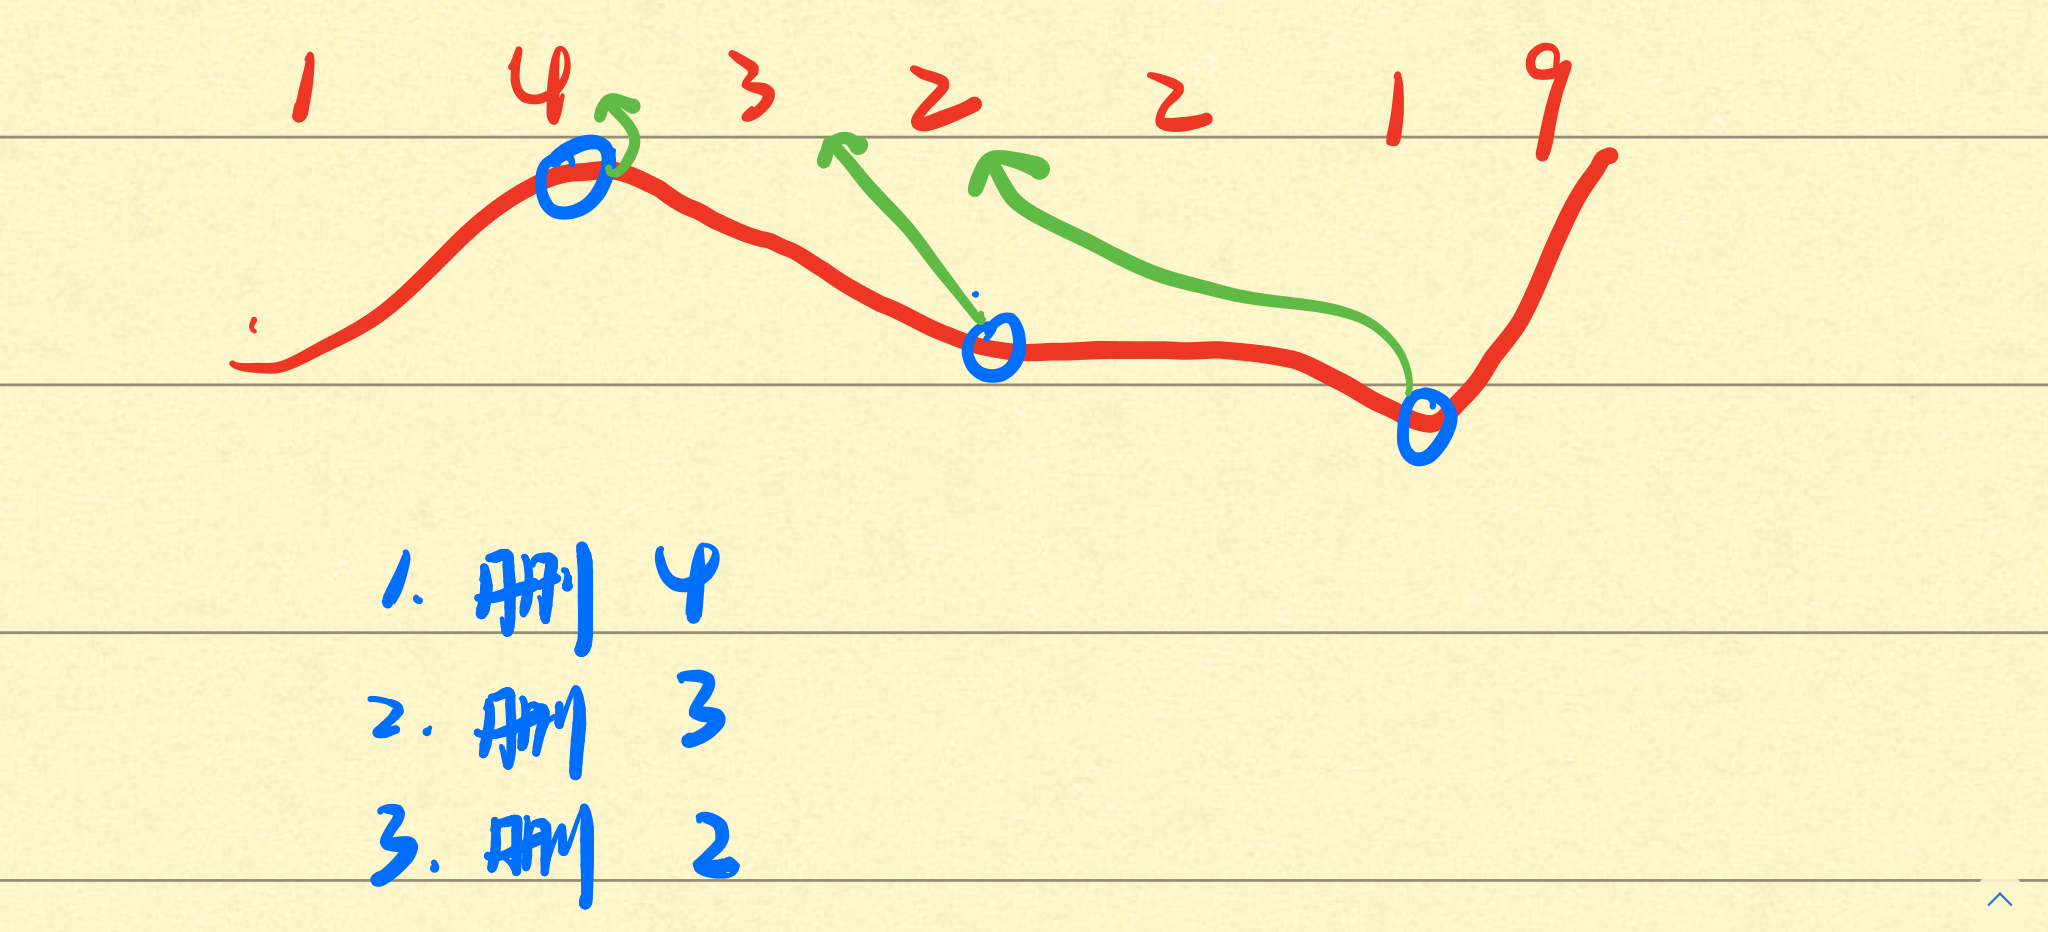 1 4 3 2 2 1 9
1. 删 4
2. 删 3
3. 删 2